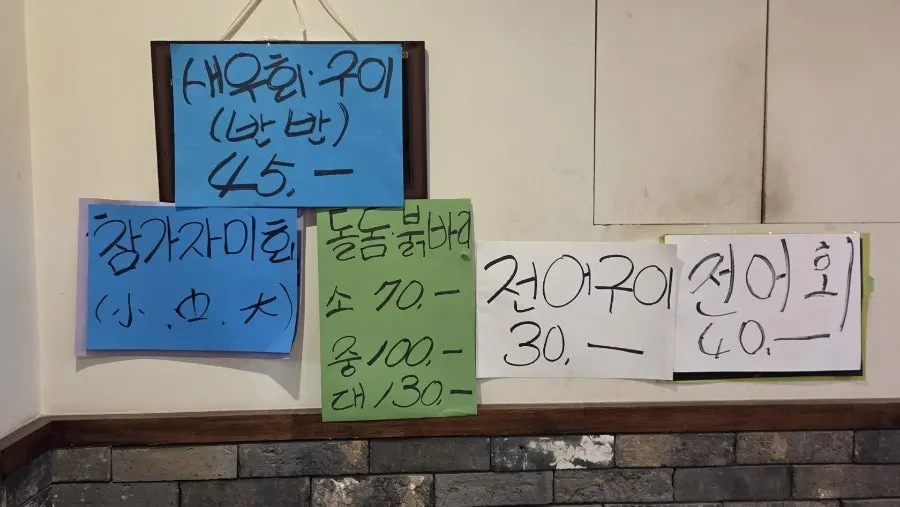 새우회·구이
(반반)
45.-
참가자미회
(小.中.大)
돌돔·붉바리
소 70.-
중 100.-
대 130.-
전어구이
30.-
전어회
40.-